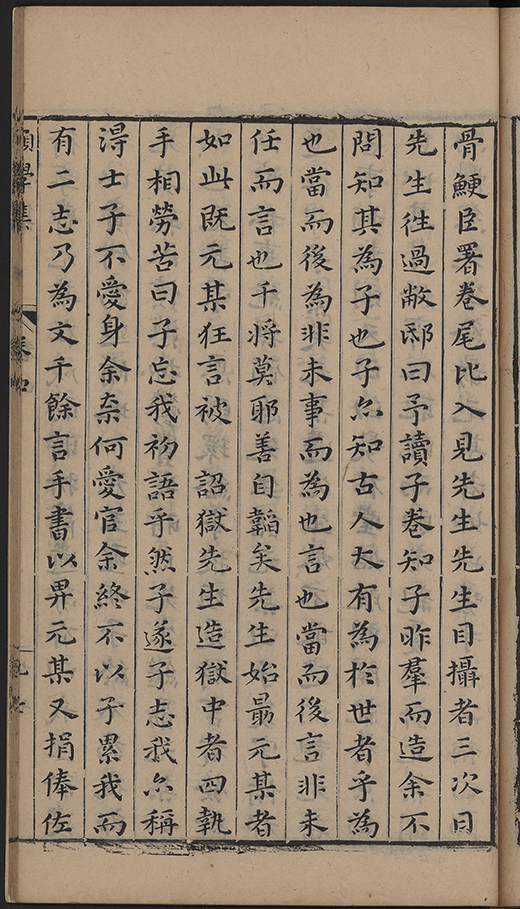 骨鯁臣署卷尾比入見先生先生目攝者三次日
先生徃過敝邸曰予讀子卷知子昨羣而造余不
問知其為子也子尒知古人大有為於世者乎為
也當而後為非未事而為也言也當而後言非未
任而言也干將莫耶善自韜矣先生始勗元某者
如此既元某狂言被 詔獄先生造獄中者四執
手相勞苦曰子忘我初語乎然子遂子志我尒稱
淂士子不愛身余柰何愛官余終不以子累我而
有二志乃為文千餘言手書以畀元某又捐俸佐
願學集
卷四